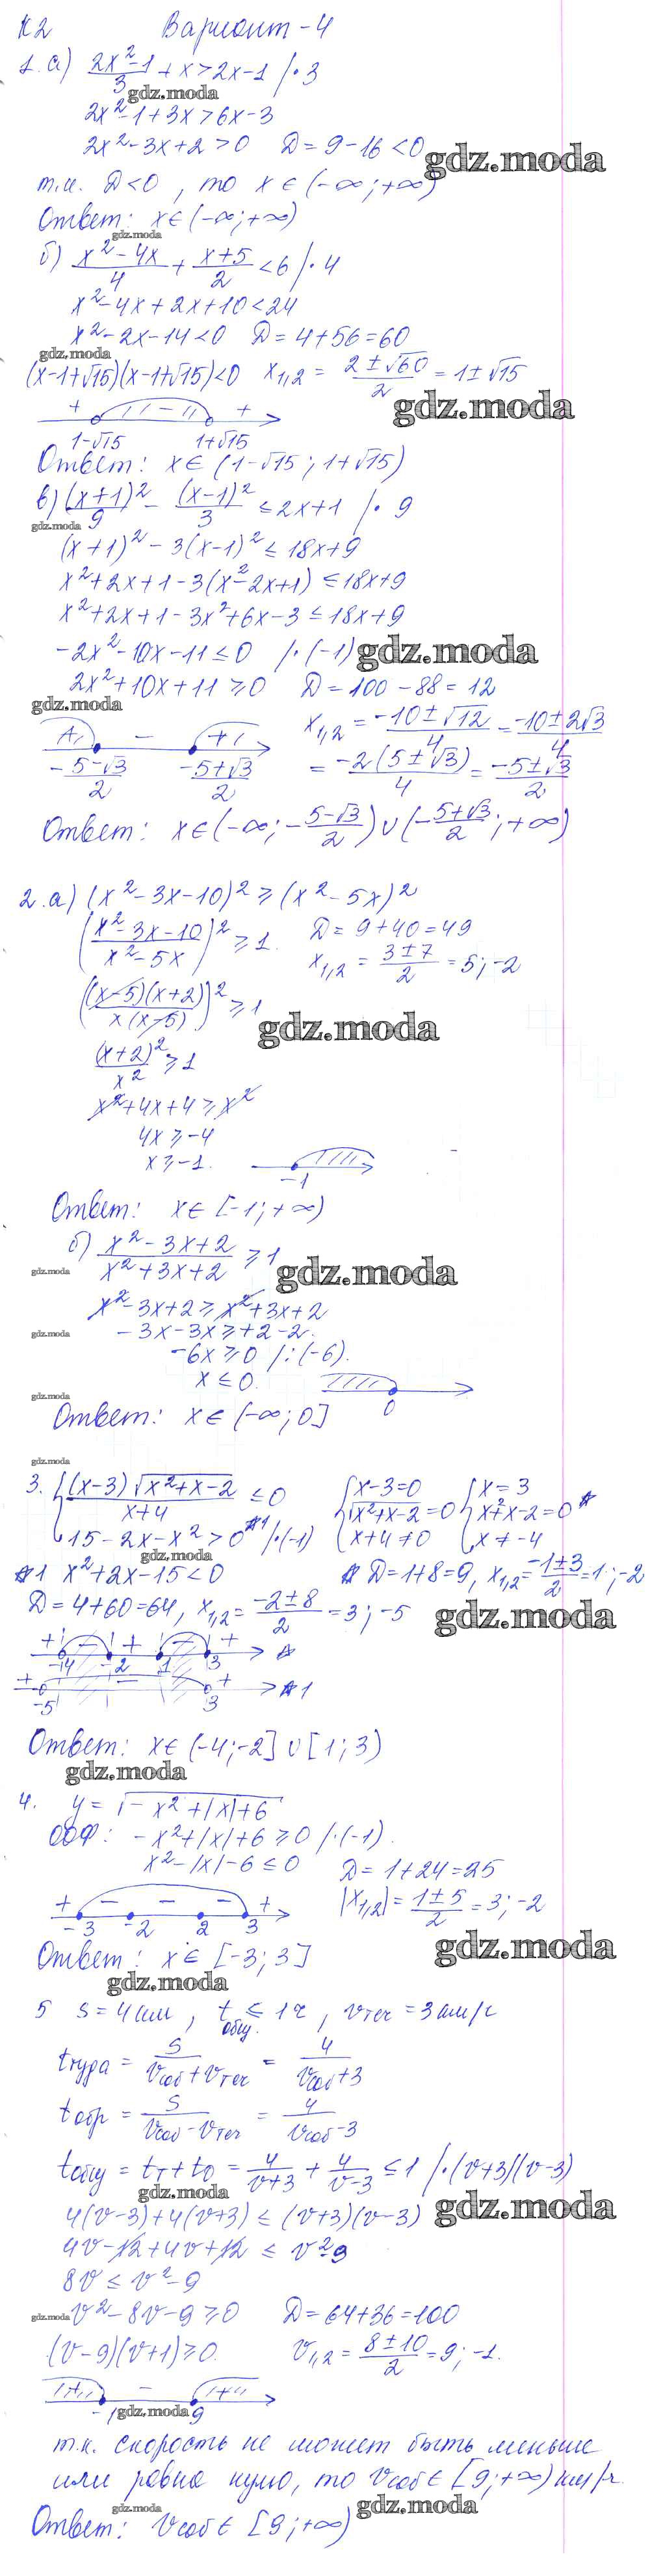 К2 Вариант-4
1. а) (2x²-1)/3 + x > 2x-1 /·3
gdz.moda
2x²-1+3x>6x-3
2x²-3x+2>0 Д=9-16<0
gdz.moda
т.к. Д<0, то x∈(-∞;+∞)
Ответ: x∈(-∞;+∞)
gdz.moda
б) (x²-4x)/4 + (x+5)/2 <6 /·4
x²-4x+2x+10<24
x²-2x-14<0 Д=4+56=60
gdz.moda
(x-1+√15)(x-1+√15)<0 x₁,₂ = (2±√60)/2 = 1±√15
gdz.moda
+ - +
1-√15 1+√15
Ответ: x∈(1-√15; 1+√15)
в) (x+1)²/9 - (x-1)²/3 ≤2x+1 /·9
gdz.moda
(x+1)²-3(x-1)²≤18x+9
x²+2x+1-3(x²-2x+1)≤18x+9
x²+2x+1-3x²+6x-3≤18x+9
-2x²-10x-11≤0 /·(-1)
gdz.moda
2x²+10x+11≥0 Д=100-88=12
gdz.moda
x₁,₂ = (-10±√12)/4 = (-10±2√3)/4
- +
-(5-√3)/2 (-5+√3)/2
= -2(5±√3)/4 = (-5±√3)/2
Ответ: x∈(-∞; -(5-√3)/2)∪(-(5+√3)/2; +∞)
2. а) (x²-3x-10)²≥(x²-5x)²
((x²-3x-10)/(x²-5x))² ≥1. Д=9+40=49
x₁,₂ = (3±7)/2 = 5;-2
((x-5)(x+2)/(x(x-5)))² ≥1
gdz.moda
(x+2)²/x² ≥1
x²+4x+4≥x²
4x≥-4
x≥-1.
-1
Ответ: x∈[-1;+∞)
б) (x²-3x+2)/(x²+3x+2) ≥1
gdz.moda
gdz.moda
x²-3x+2≥x²+3x+2
gdz.moda
-3x-3x≥+2-2.
-6x≥0 /:(-6).
x≤0.
gdz.moda
0
Ответ: x∈(-∞;0]
gdz.moda
3. { (x-3)√(x²+x-2)/(x+4) ≤0 { x-3=0 { x=3
15-2x-x²>0 *1 /·(-1) √(x²+x-2)=0 x²+x-2=0 *
x+4≠0 x≠-4
gdz.moda
*1 x²+2x-15<0 * Д=1+8=9, x₁,₂ = (-1±3)/2 = 1;-2
Д=4+60=64, x₁,₂ = (-2±8)/2 = 3;-5
gdz.moda
+ - + - +
-4 -2 1 3 *
+ - +
-5 3 *1
Ответ: x∈(-4;-2]∪[1;3)
gdz.moda
4. y=√(-x²+|x|+6)
ООФ: -x²+|x|+6≥0 /·(-1).
x²-|x|-6≤0 Д=1+24=25
|x₁,₂| = (1±5)/2 = 3;-2
+ - - - +
-3 -2 2 3
gdz.moda
Ответ: x∈[-3;3]
gdz.moda
5 S=4км, tобщ. ≤ 1ч, vтеч =3км/ч
tтуда = S/(vсоб+vтеч) = 4/(vсоб+3)
tобр = S/(vсоб-vтеч) = 4/(vсоб-3)
tобщ = tт+tо = 4/(v+3) + 4/(v-3) ≤1 /·(v+3)(v-3)
gdz.moda
4(v-3)+4(v+3)≤(v+3)(v-3)
gdz.moda
4v-12+4v+12≤v²-9
8v≤v²-9
gdz.moda
v²-8v-9≥0 Д=64+36=100
(v-9)(v+1)≥0. v₁,₂ = (8±10)/2 = 9;-1.
+ - +
-1 9
gdz.moda
т.к. скорость не может быть меньше
или равна нулю, то vсоб∈[9;+∞)км/ч.
gdz.moda
gdz.moda
Ответ: vсоб∈[9;+∞)